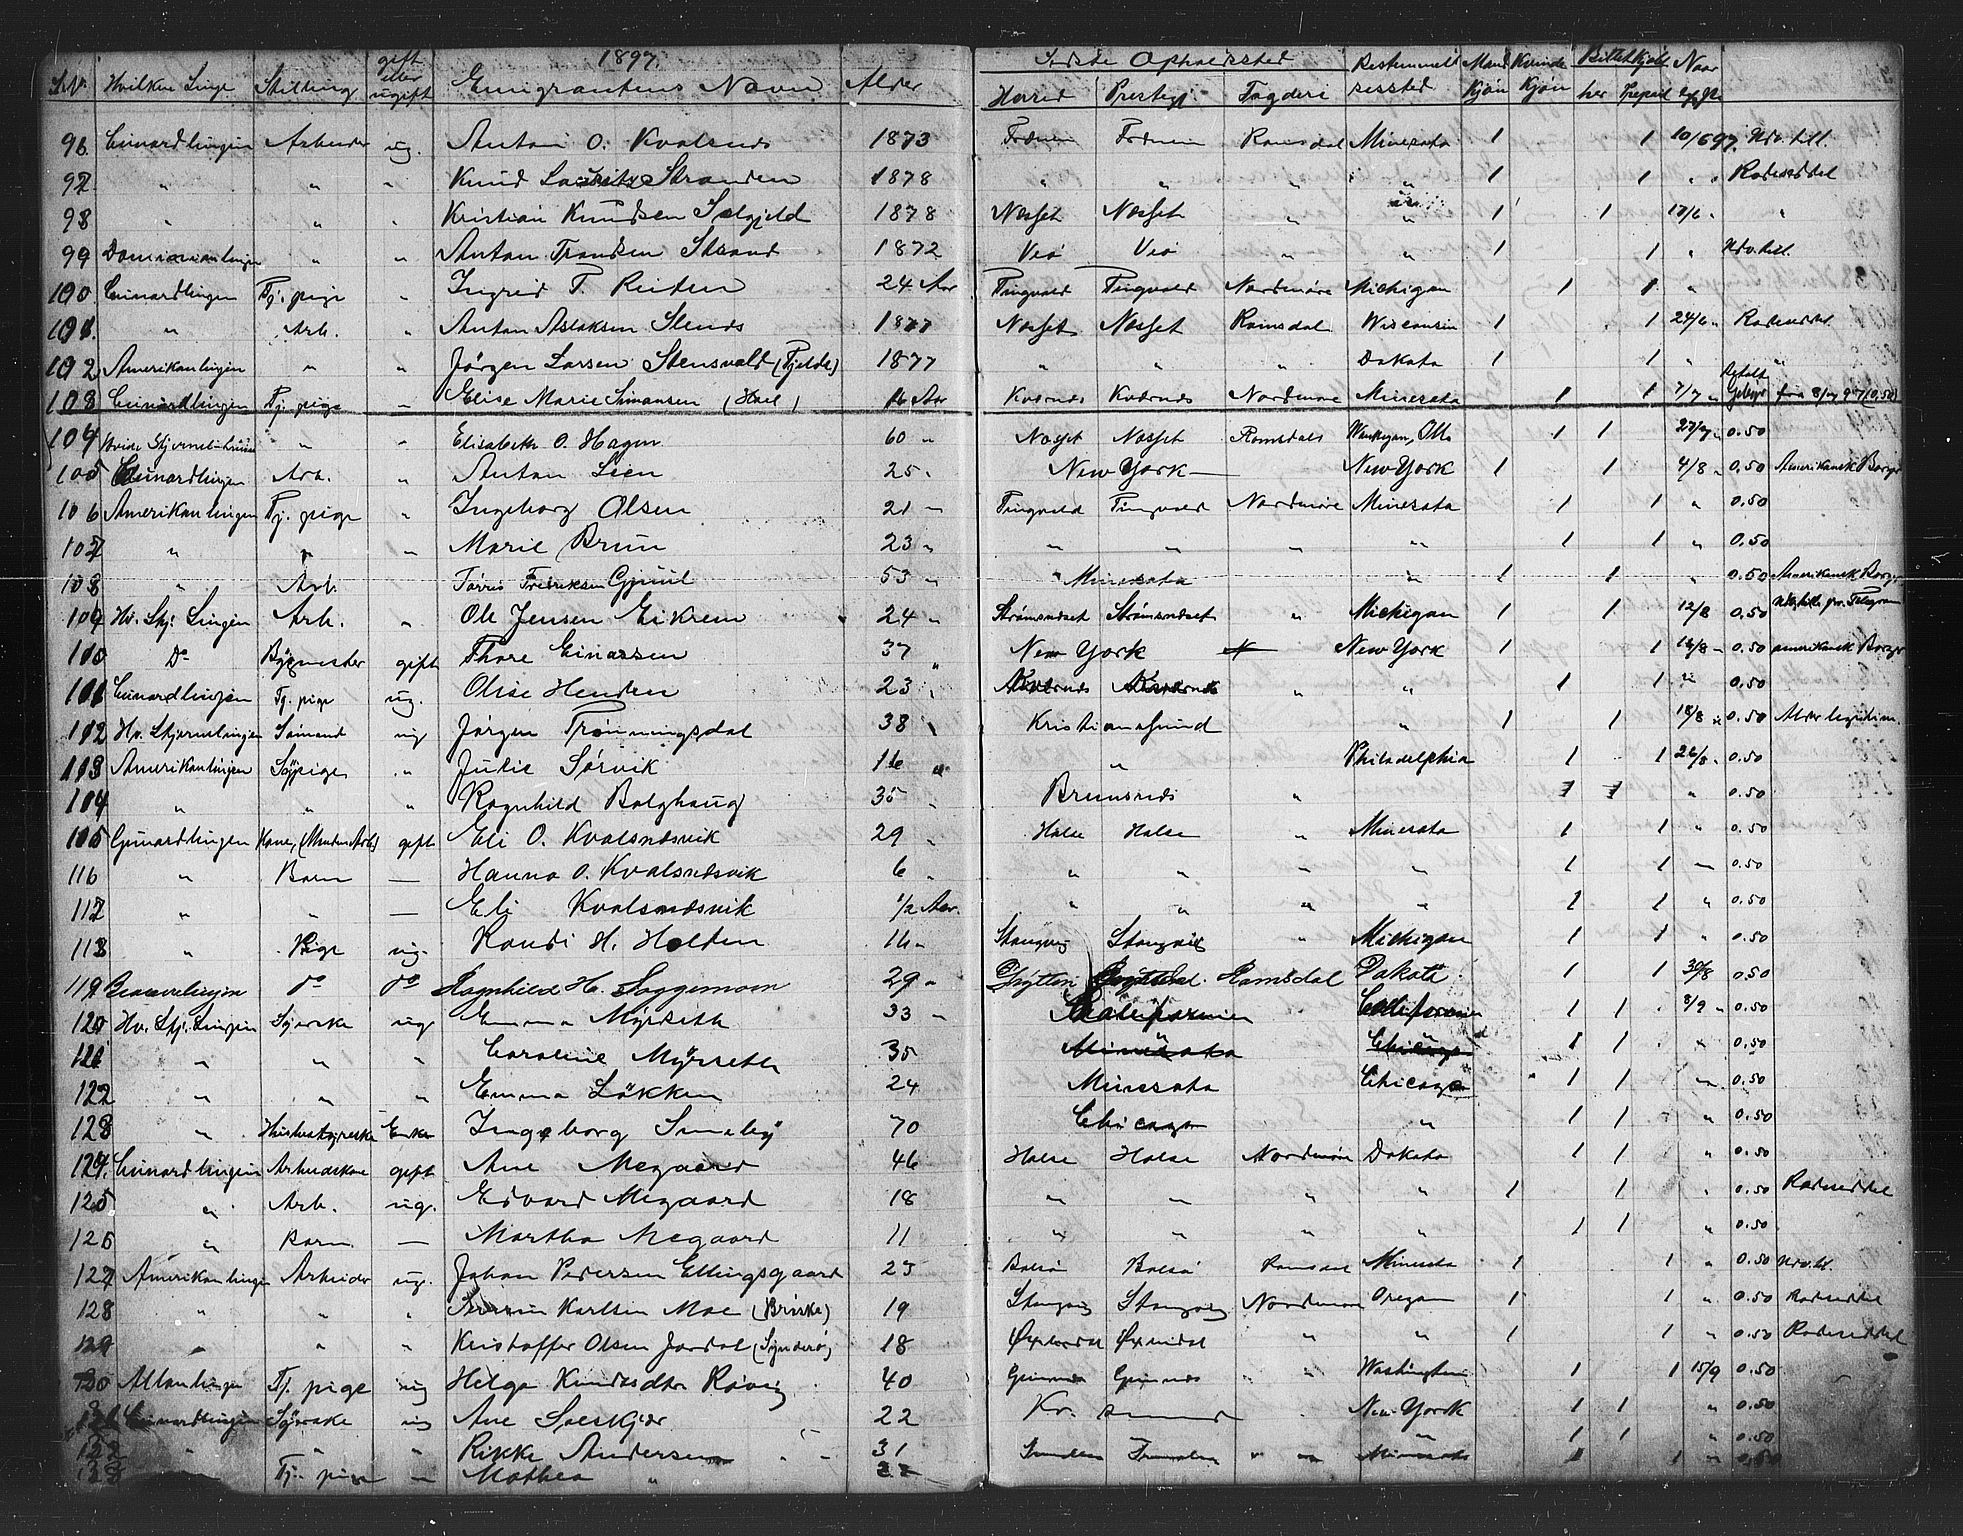 1897.
L.Nr. Hvilken Linje Stilling gift eller ugift Emigrantens Navn Alder Sidste Opholdssted Herred Prestegj. Fogderi Bestemmelsessted Mand Kjøn Kvinde Kjøn Billet kjøbt her Prepaid Naar
96. Cunardlinjen Arbeider ug. Anton O. Kvalsnds 1873 Romsdal Minesota 1 1 10/6 97. Udv. till.
97 " " " Knud Stranden 1878 " " " " 1 1 " " Rodeseddel
98 " " " Kristian Knudsen 1878 Nesset Nesset " " 1 1 " "
99 Dominionlinjen " " Anton Strand 1872 Veø Veø " " 1 1 " Udv. till.
100 Cunardlinjen Tj. pige " Ingrid T. Reiten 24 Aar Tingvold Tingvold Nordmøre Michigan 1 1 "
101 " Arb. " Anton Aslaksen Stends 1877 Nesset Nesset Romsdal Wisconsin 1 1 24/6 " Rodeseddel
102 Amerikanlinjen " " Jørgen Larsen Stensvold (Fjelde) 1877 " " " Dakota 1 1 " "
103 Cunardlinjen Tj. pige " Elise Marie Simonsen 16 Aar Kvernes Kvernes Nordmøre Minesota 1 1 7/7 " Betalt Gebyr fra 8/7 97 (0,50)
104 Hvide Stjernelinien " " Elisabeth O. Hagen 60 " Nesset Nesset Romsdals 1 1 0.50
105 Cunardlinjen Arb. " Anton Lien 25 " New York — New York 1 1 4/8 " 0.50 Amerikansk Borger
106 Amerikanlinjen Tj. pige " Ingeborg Olsen 21 " Tingvold Tingvold Nordmøre Minesota 1 1 " 0.50
107 " " " Marie Brun 23 " " " " " 1 1 " 0.50
108 " Arb. Fredriksen 53 " Minesota " 1 1 " 0.50 Amerikansk Borger
109 Hv. Stj. Linjen Arb. " Ole Jensen Eikrem 24 " " Michigan 1 1 12/8 0.50 pr. Telegram
110 Do Bygmester gift Thore Einarsen 37 " New York New York 1 1 0.50 amerikansk Borger
111 Cunardlinjen Tj. pige ug. Olise Henden 23 " Kvernes Kvernes " " 1 1 " 0.50
112 Hv. Stjernelinjen Sømand ug Jørgen Trønningsdal 38 " Kristiansund " 1 1 18/8 " 0.50
113 Amerikanlinjen Sypige " Julie Sørvik 16 " " Philadelphia 1 1 26/8 " 0.50
104 " " " Ragnhild Bolghaug 35 " Bremsnes " 1 1 " 0.50
105 Cunardlinjen Kone, gift Eli O. Kvalsnesvik 29 " Halse Halse " Minesota 1 1 " 0.50
116 " Barn — Hanna O. Kvalsnesvik 6 " " " " " 1 1 0.50
117 " " — Eli Kvalsnesvik 1/2 Aar. " " " " 1 1 " 0.50
118 " Pige ug. Randi H. Holden 16 " Stangvig Stangvig " Michigan 1 1 " 0.50
119 do do Ragnhild H. Soggemoen 29 " Grytten Romsdal Dakota 1 1 30/8 0.50
120 Hv. Stj. Linjen Syerske ug. Emma Myrseth 33 " Californien Californien 1 1 8/9 " 0.50
121 " " " Caroline Myrseth 35 Minesota Chicago 1 1 " 0.50
122 " " " Emma Løkken 24 Minesota Chicago 1 1 " 0.50
123 " Enke Ingeborg Smeby 70 Chicago " 1 1 " 0.50
124. Cunardlinjen Arbeiderkone gift Ane Megaard 46 Halse Halse Nordmøre Dakota 1 1 " 0.50
125 " Arb. ug. Edvard Megaard 18 " " " " 1 1 " 0.50 Rodeseddel
126 " Barn — Martha Megaard 11 " " " " 1 1 " 0.50
127 Amerikanlinjen Arbeider ug. Johan Pedersen Ellingsgaard 23 Bolsø Bolsø Romsdal Minesota 1 1 " 0.50 Udv. til.
128 " " " Karlsen Moe (Brøske) 19 Stangvig Stangvig Nordmøre Oregon 1 1 " 0.50 Rodeseddel
129 " " " Kristoffer Olsen Jordal 18 Øxendal Øxendal " " 1 1 " 0.50 Rodeseddel
130 Allanlinjen Tj. pige ug Helga Knudsdtr Røvig 40 " " Washington 1 1 15/9 0.50
131 Cunardlinjen Syerske ug Ane 22 Kr. sund New York 1 1 " 0.50
132 " " " Rikke Andersen 31 " 1 1 " 0.50
133 " Tj. pige " Mathea " 22 " " Minesota 1 1 " 0.50